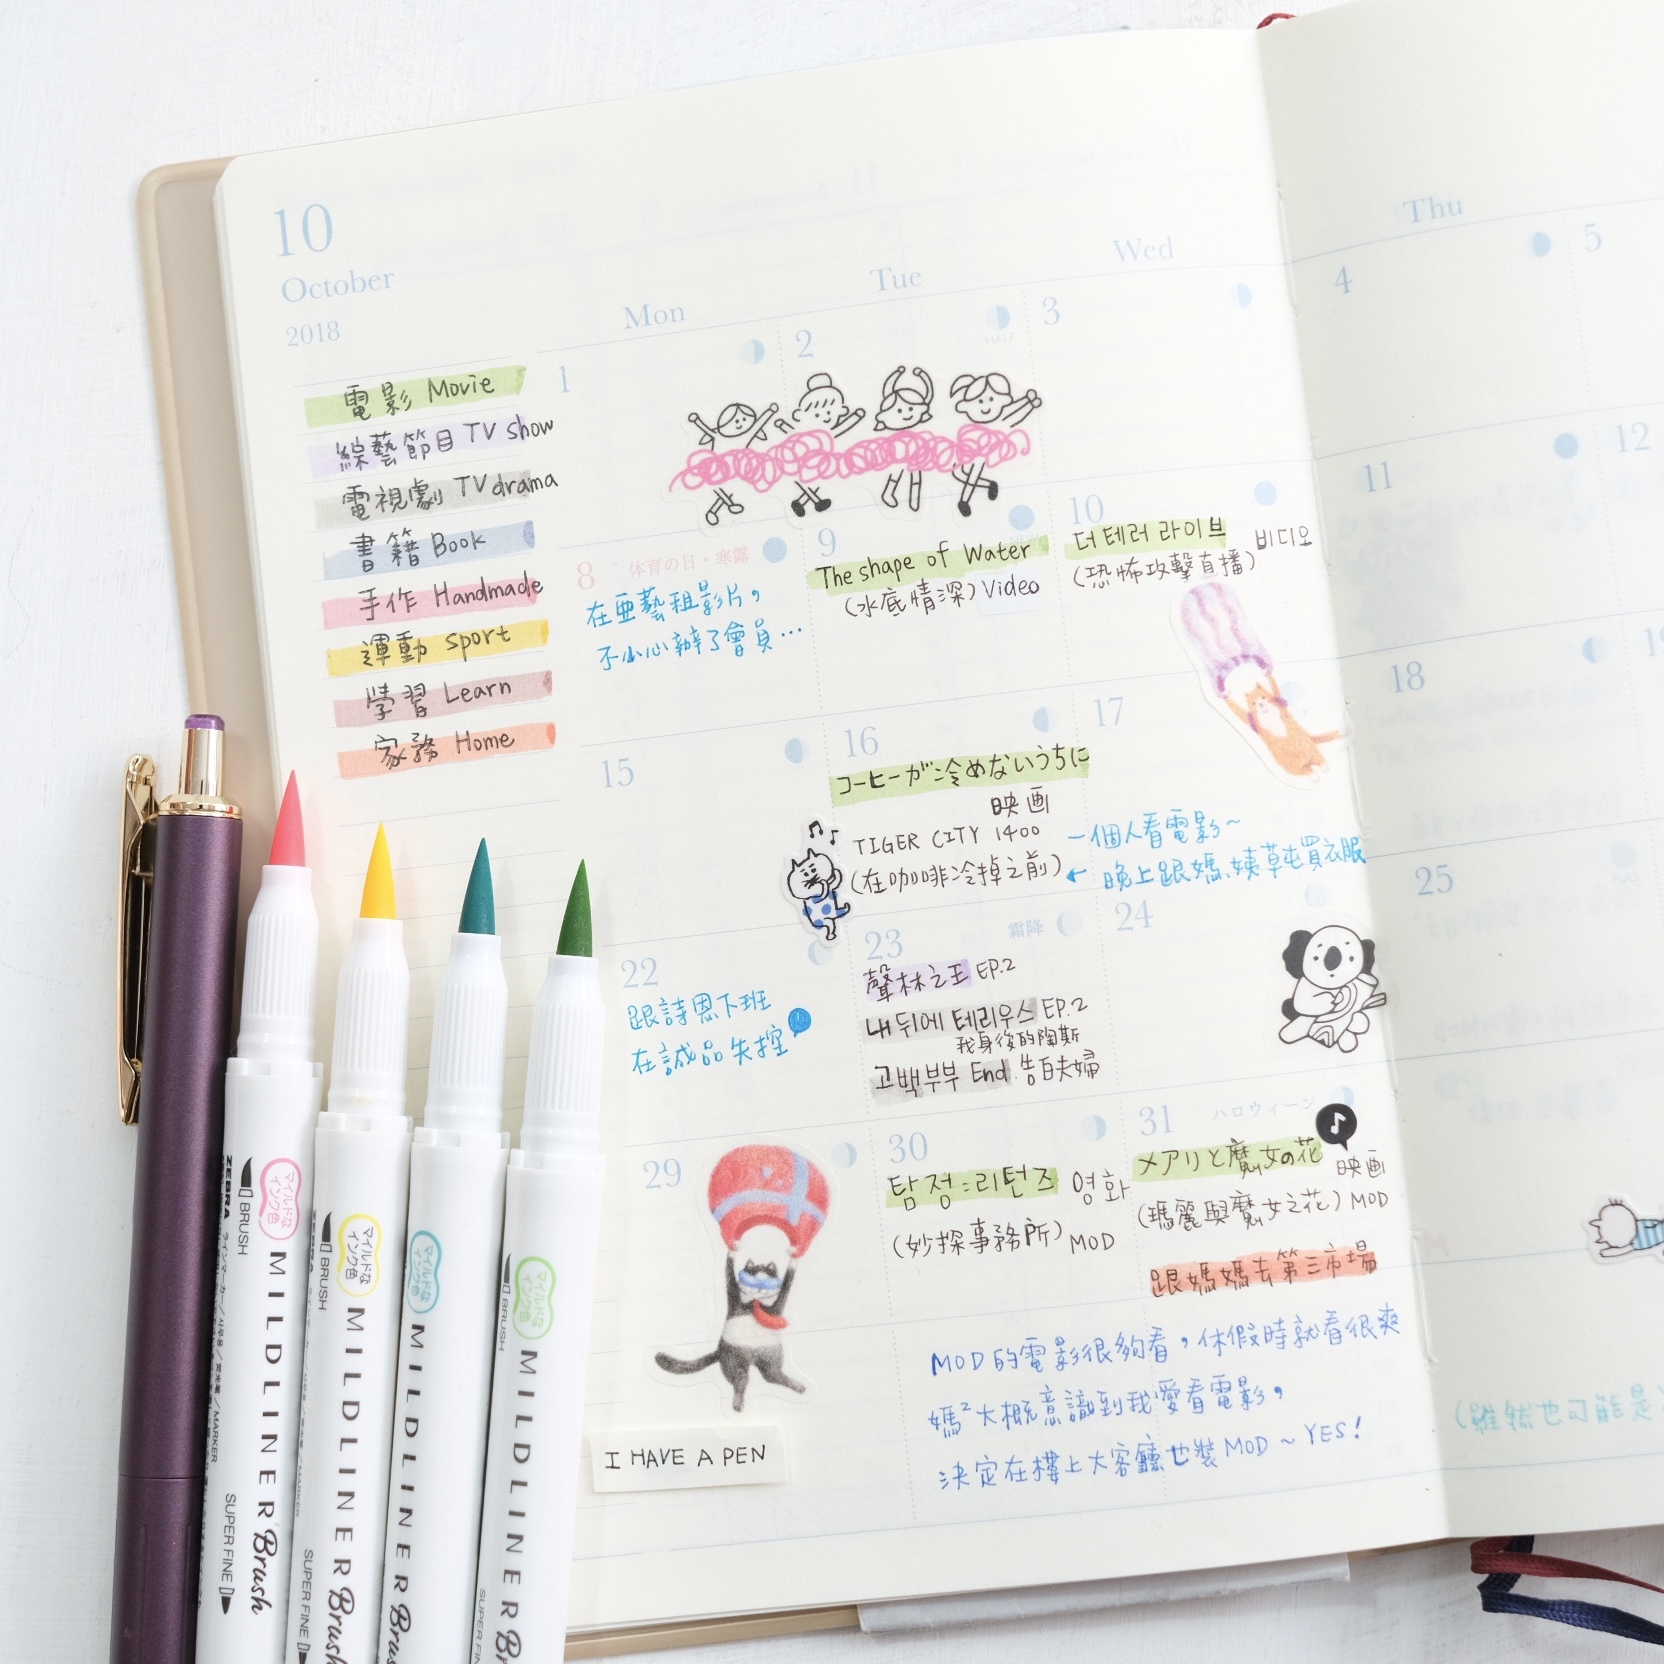 10
October
2018
Mon
Tue
Wed
Thu
電影 Movie
綜藝節目 TV show
電視劇 TV drama
書籍 Book
手作 Handmade
運動 sport
學習 Learn
家務 Home
1
2
HALF
3
4
5
8 体育の日・寒露
在亜藝租影片,
不小心辦了會員…
9
The shape of Water
(水底情深) Video
10
더 테러 라이브 비디오
(恐怖攻擊直播)
11
12
15
16
コーヒーが冷めないうちに
映画
TIGER CITY 1400
(在咖啡冷掉之前)
17
一個人看電影~
← 晚上跟媽、姨草屯買衣服
18
19
22
跟詩恩下班
在誠品失控
23 霜降
聲林之王 EP.2
내 뒤에 테리우스 EP.2
我身後的陶斯
고백부부 End 告白夫婦
24
25
29
30
탐정:리턴즈 영화
(妙探事務所) MOD
31 ハロウィーン
メアリと魔女の花 映画
(瑪麗與魔女之花) MOD
跟媽媽去第三市場
MOD的電影很夠看,休假時就看很爽
媽² 大概意識到我愛看電影,
決定在樓上大客廳也裝MOD ~ YES!
(雖然也可能是
I HAVE A PEN
ZEBRA
BRUSH
マイルドな
インク色
MILDLINER Brush
ラインマーカー/사무용/荧光笔/MARKER
SUPER FINE
BRUSH
マイルドな
インク色
MILDLINER Brush
SUPER FINE
マイルドな
インク色
MILDLINER Brus
BRUSH
マイルドな
インク色
MILDLINER B
SUPER FINE